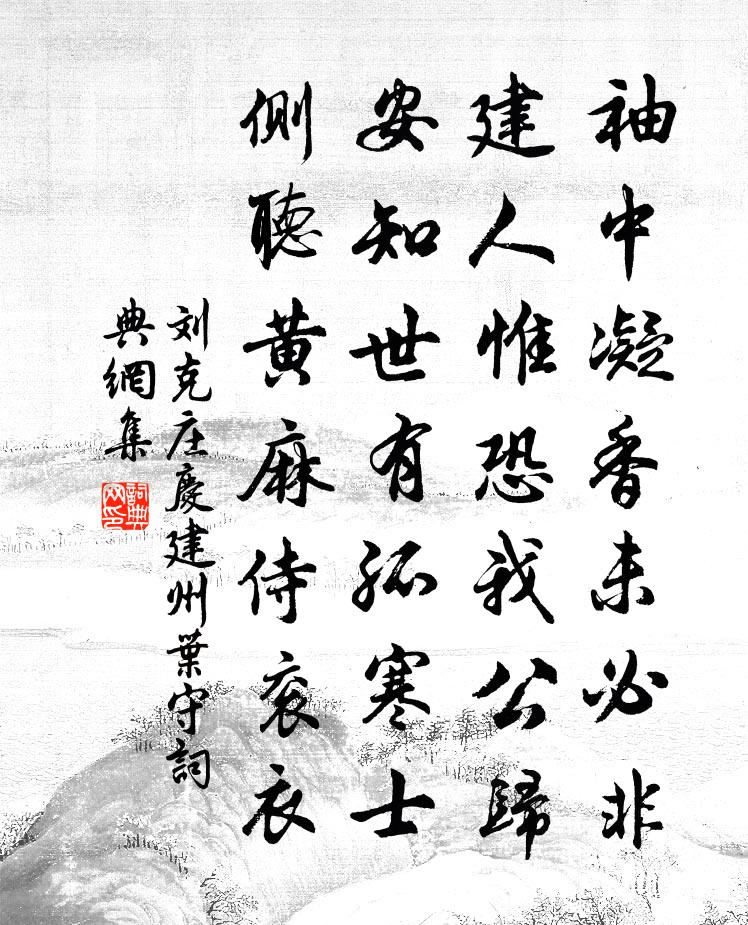 袖中凝香未必非
建人惟恐我公歸
安知世有孤寒士
側聽黃麻侍衮衣
刘克庄慶建州葉守詞
典網集
詞典網印